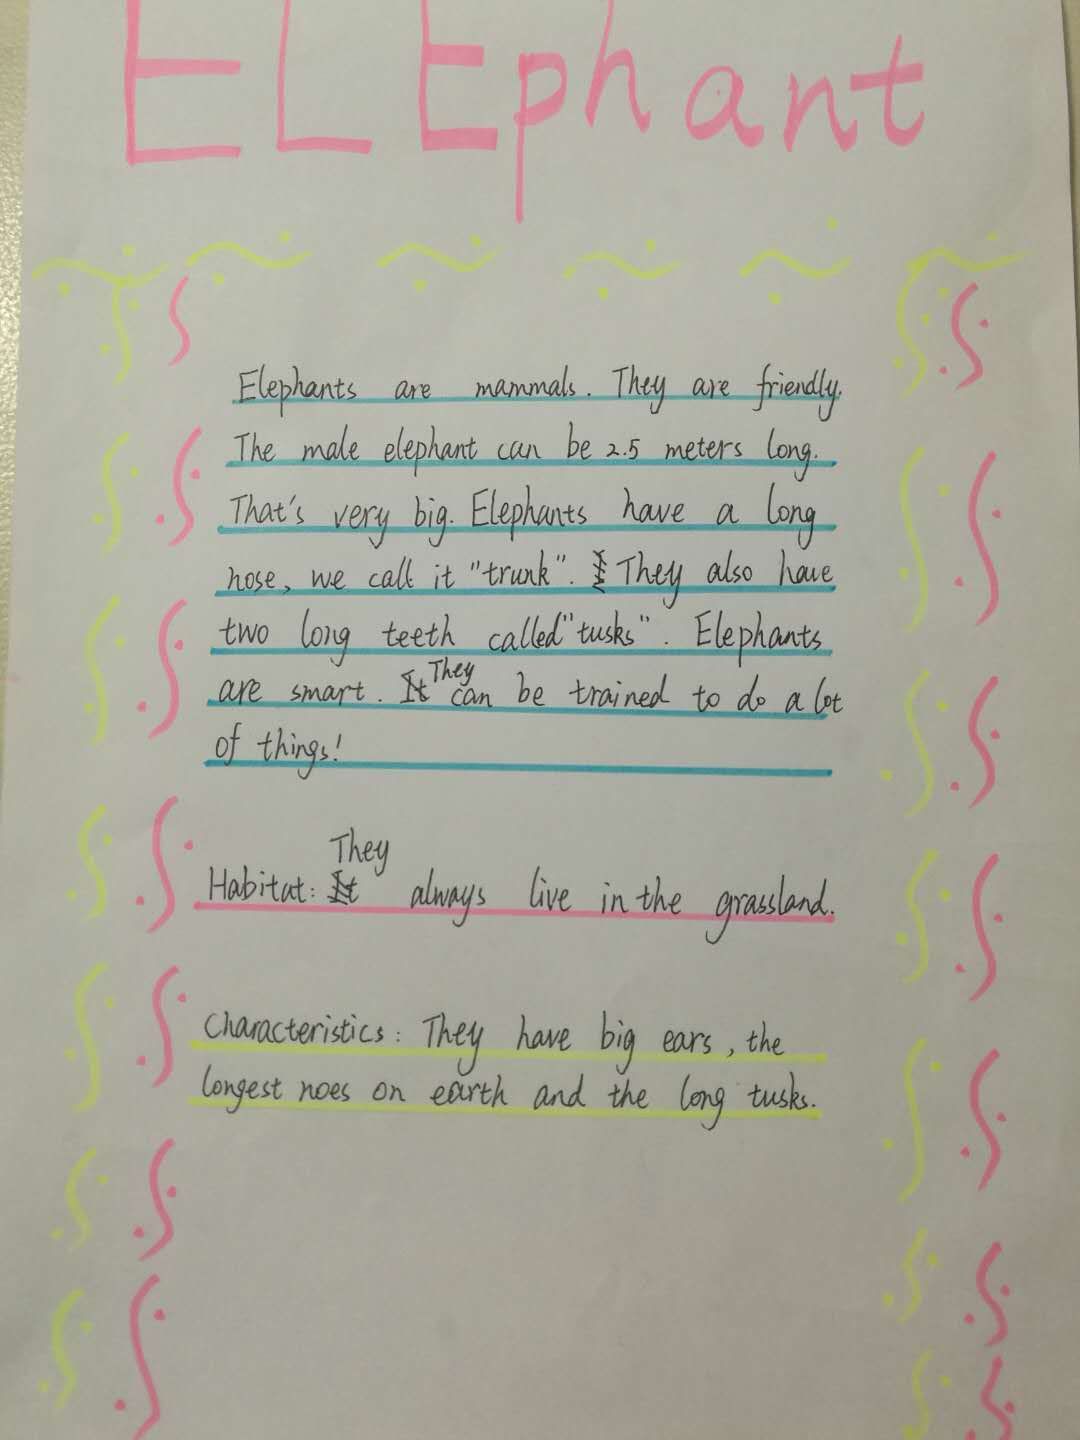 ELEphant
Elephants are mammals. They are friendly.
The male elephant can be 2.5 meters long.
That's very big. Elephants have a long
nose, we call it "trunk". They also have
two long teeth called "tusks". Elephants
are smart. They can be trained to do a lot
of things!
Habitat: They always live in the grassland.
Characteristics: They have big ears, the
longest noes on earth and the long tusks.